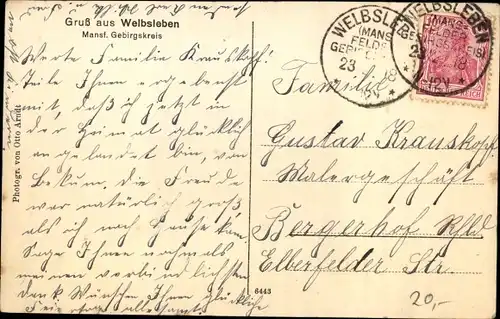 Gruß aus Welbsleben
Mansf. Gebirgskreis
Photogr. von Otto Arndt
Werte Familie Krauskopf!
Teile Ihnen ergebenst
mit, daß ich jetzt in
der Heimat glücklich
angelandet bin, von
Bekum. Die Freude
war natürlich groß
als ich nach Hause kam.
Sage Ihnen nochmals
meinen verbindlichsten
Dank Wünsche Ihnen glückliche
WELBSLEBEN
(MANSFELDER
GEBIRGSKREIS)
23
Familie
Gustav Krauskopf
Malergeschäft
Bergerhof Rhld
Elberfelder Str.
6443
20,-